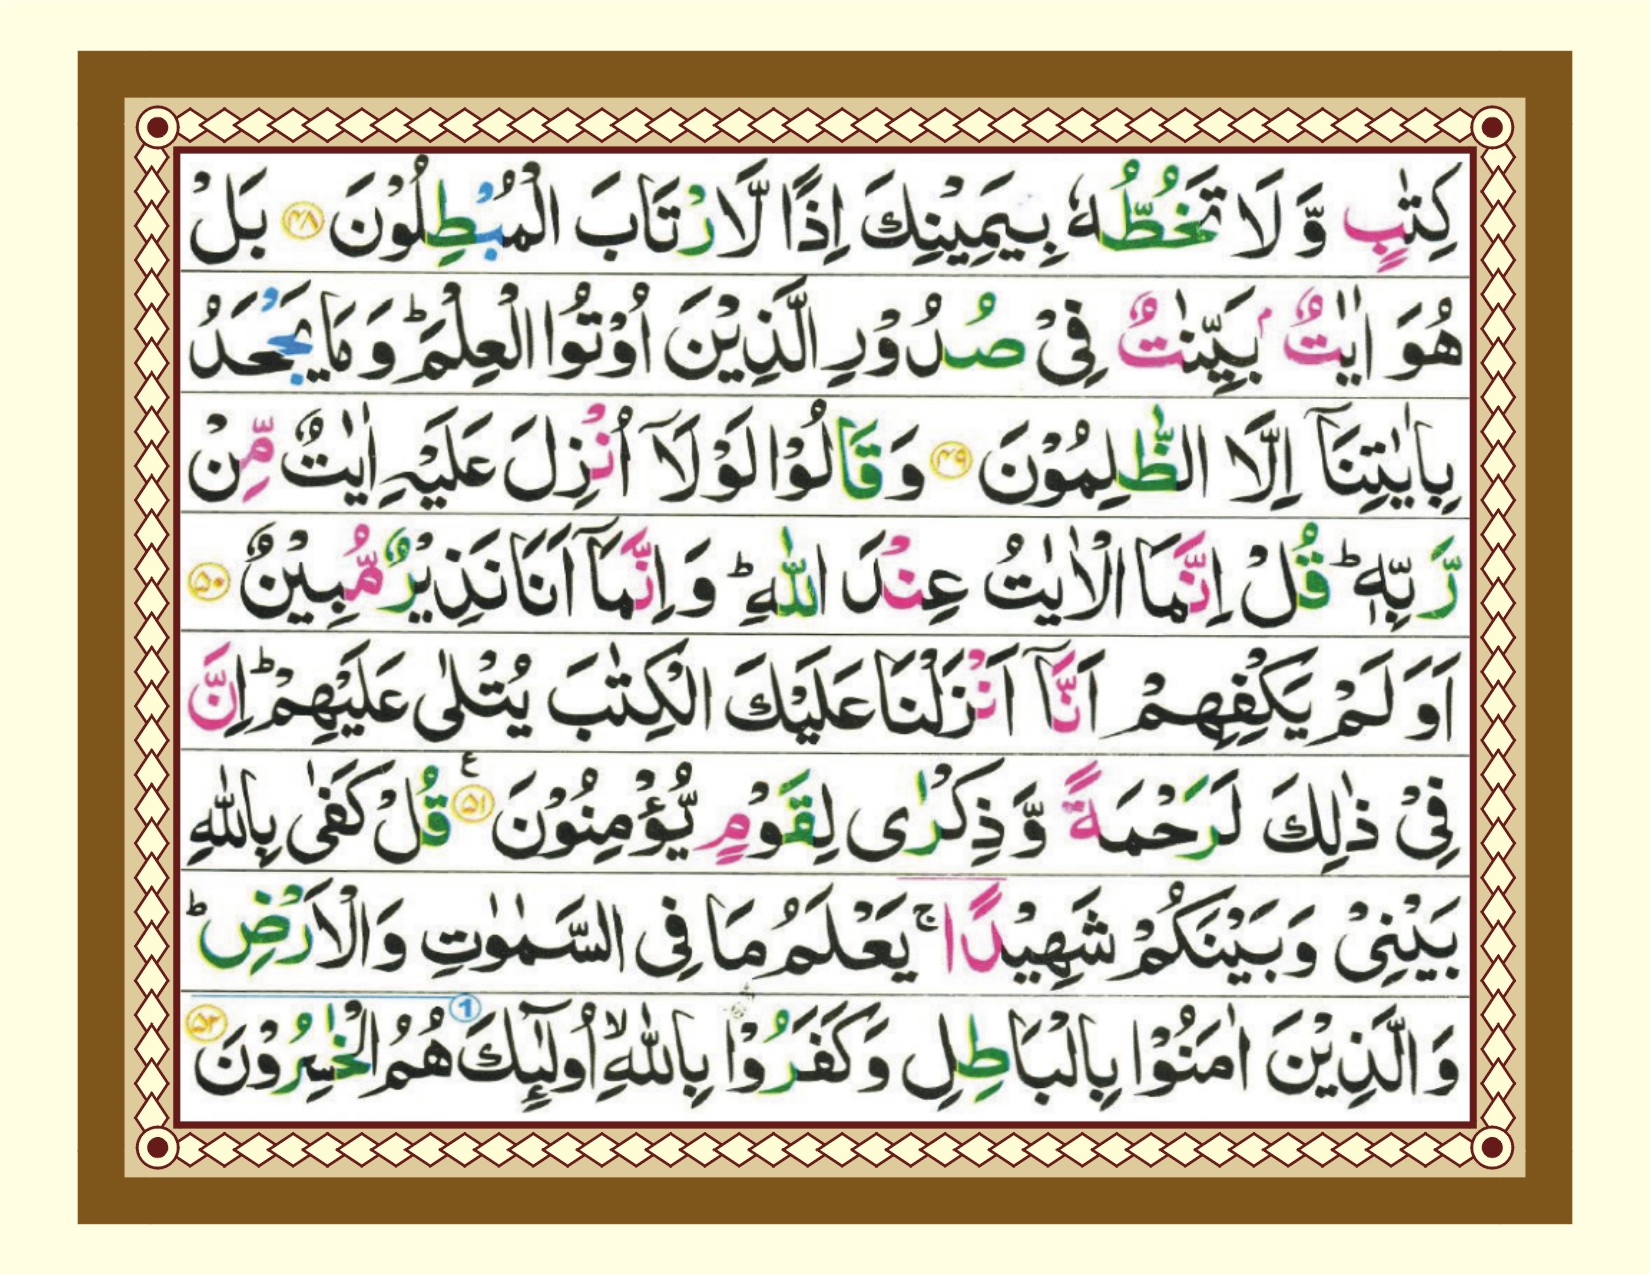 كِتٰبٍ وَّ لَا تَخُطُّهٗ بِيَمِيْنِكَ اِذًا لَّا رْتَابَ الْمُبْطِلُوْنَ ۴۸ بَلْ
هُوَ اٰيٰتٌۢ بَيِّنٰتٌ فِىْ صُدُوْرِ الَّذِيْنَ اُوْتُوا الْعِلْمَ ؕ وَ مَا يَجْحَدُ
بِاٰيٰتِنَاۤ اِلَّا الظّٰلِمُوْنَ ۴۹ وَ قَالُوْا لَوْ لَاۤ اُنْزِلَ عَلَيْهِ اٰيٰتٌ مِّنْ
رَّبِّهٖ ؕ قُلْ اِنَّمَا الْاٰيٰتُ عِنْدَ اللّٰهِ ؕ وَ اِنَّمَاۤ اَنَا نَذِيْرٌ مُّبِيْنٌ ۵۰
اَوَ لَمْ يَكْفِهِمْ اَنَّاۤ اَنْزَلْنَا عَلَيْكَ الْكِتٰبَ يُتْلٰى عَلَيْهِمْ ؕ اِنَّ
فِىْ ذٰلِكَ لَرَحْمَةً وَّ ذِكْرٰى لِقَوْمٍ يُّؤْمِنُوْنَ ۵۱ ع قُلْ كَفٰى بِاللّٰهِ
بَيْنِىْ وَ بَيْنَكُمْ شَهِيْدًا ۚ يَعْلَمُ مَا فِى السَّمٰوٰتِ وَ الْاَرْضِ ؕ
وَ الَّذِيْنَ اٰمَنُوْا بِالْبَاطِلِ وَ كَفَرُوْا بِاللّٰهِ ۙ اُولٰٓئِكَ 1 هُمُ الْخٰسِرُوْنَ ۵۲